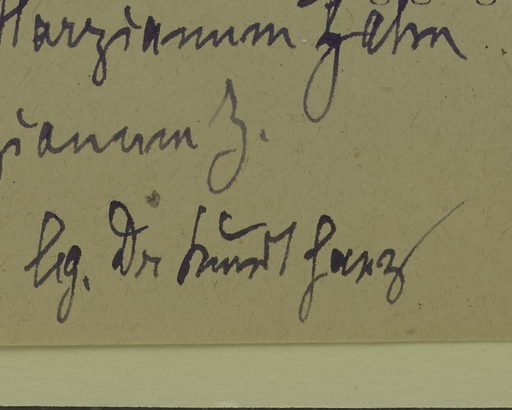 Harzianum Zahn
zianum Z.
leg. Dr Kurt Harz